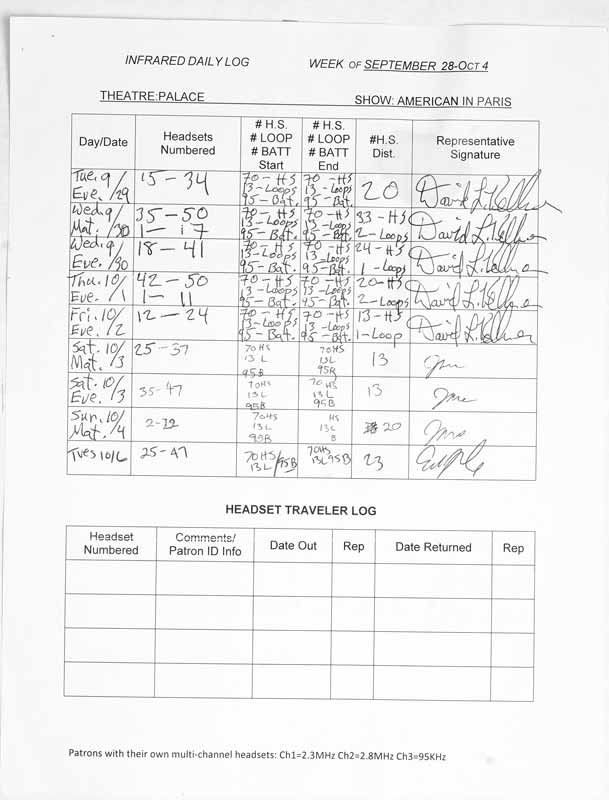 INFRARED DAILY LOG WEEK OF SEPTEMBER 28-OCT 4
THEATRE:PALACE SHOW: AMERICAN IN PARIS
Day/Date Headsets Numbered # H.S. # LOOP # BATT Start # H.S. # LOOP # BATT End #H.S. Dist. Representative Signature
Tue. 9/29 Eve. 15-34 70-HS 13-Loops 95-Bat. 70-HS 13-Loops 95-Bat. 20 David L. Kellner
Wed. 9/30 Mat. 35-50 1-17 70-HS 13-Loops 95-Bat. 70-HS 13-Loops 95-Bat. 33-HS 2-Loops David L. Kellner
Wed. 9/30 Eve. 18-41 70-HS 13-Loops 95-Bat. 70-HS 13-Loops 95-Bat. 24-HS 1-Loops David L. Kellner
Thu. 10/1 Eve. 42-50 1-11 70-HS 13-Loops 95-Bat. 70-HS 13-Loops 95-Bat. 20-HS 2-Loops David L. Kellner
Fri. 10/2 Eve. 12-24 70-HS 13-Loops 95-Bat. 70-HS 13-Loops 95-Bat. 13-HS 1-Loop David L. Kellner
Sat. 10/3 Mat. 25-37 70HS 13L 95B 70HS 13L 95B 13
Sat. 10/3 Eve. 35-47 70HS 13L 95B 70HS 13L 95B 13
Sun. 10/4 Mat. 70HS 13L 95B HS 13L B 20
Tues 10/6 25-47 70HS/95B 13L 70HS 13L 95B 23
HEADSET TRAVELER LOG
Headset Numbered Comments/ Patron ID Info Date Out Rep Date Returned Rep
Patrons with their own multi-channel headsets: Ch1=2.3MHz Ch2=2.8MHz Ch3=95KHz